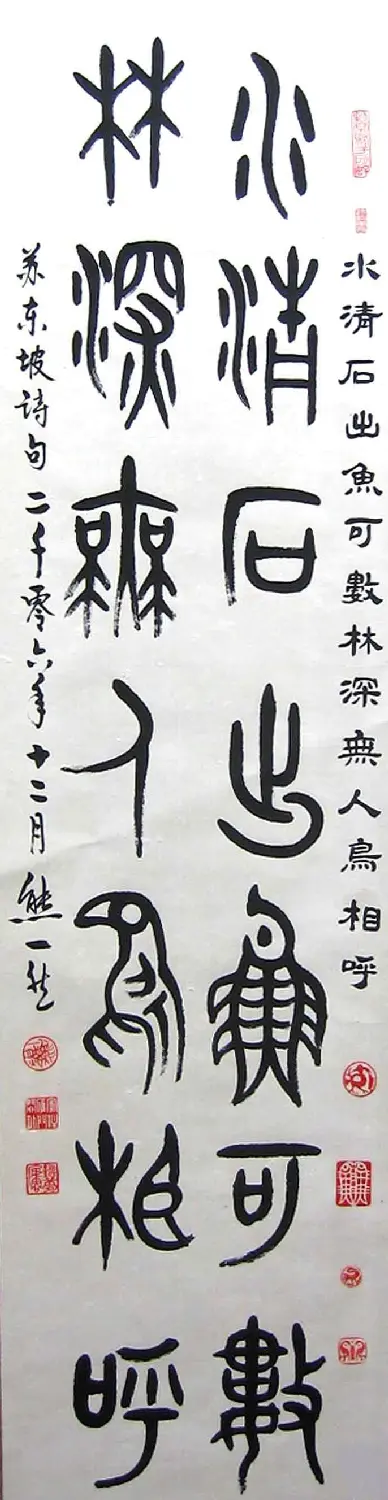 水清石出魚可數林深無人鳥相呼
水清石出魚可數
林深無人鳥相呼
苏东坡诗句二千零六年十二月熊一然